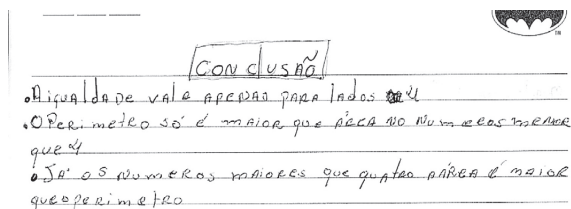 CONCLUSÃO
.A igualdade vale apenas para lados 4
.O Perimetro só é maior que área no numeros menor
que 4
.Já os numeros maiores que quatro a área é maior
que o perimetro